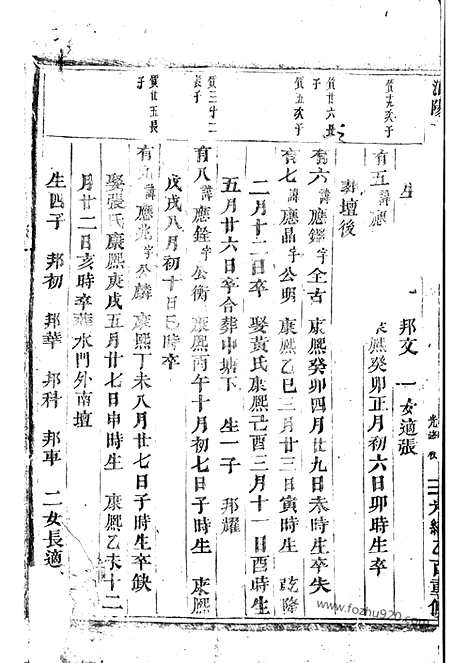 生
邦文 一女適張
有五諱應
熙癸卯正月初六日卯時生卒
葬壇後
有六諱應鐸字全古 康熙癸卯四月廿九日未時生卒失
有七諱應晶字公明 康熙乙巳三月廿三日寅時生 乾隆
二月十二日卒 娶黃氏康熙己酉三月十一日酉時生
五月廿六日卒合葬中塘下 生一子 邦耀
有八諱應銓字公衡 康熙丙午十月初七日子時生 康熙
戊戌八月初十日 時卒
有九諱應兆字公麟 康熙丁未八月廿七日子時生卒缺
娶張氏康熙庚戌五月廿七日申時生 康熙乙未十二
月廿二日亥時卒葬水門外南壇
生四子 邦初 邦華 邦科 邦車 二女長適
質廿六長
子
質五次子
質三十二
長子
質廿五長
子
www.fozhu920.com